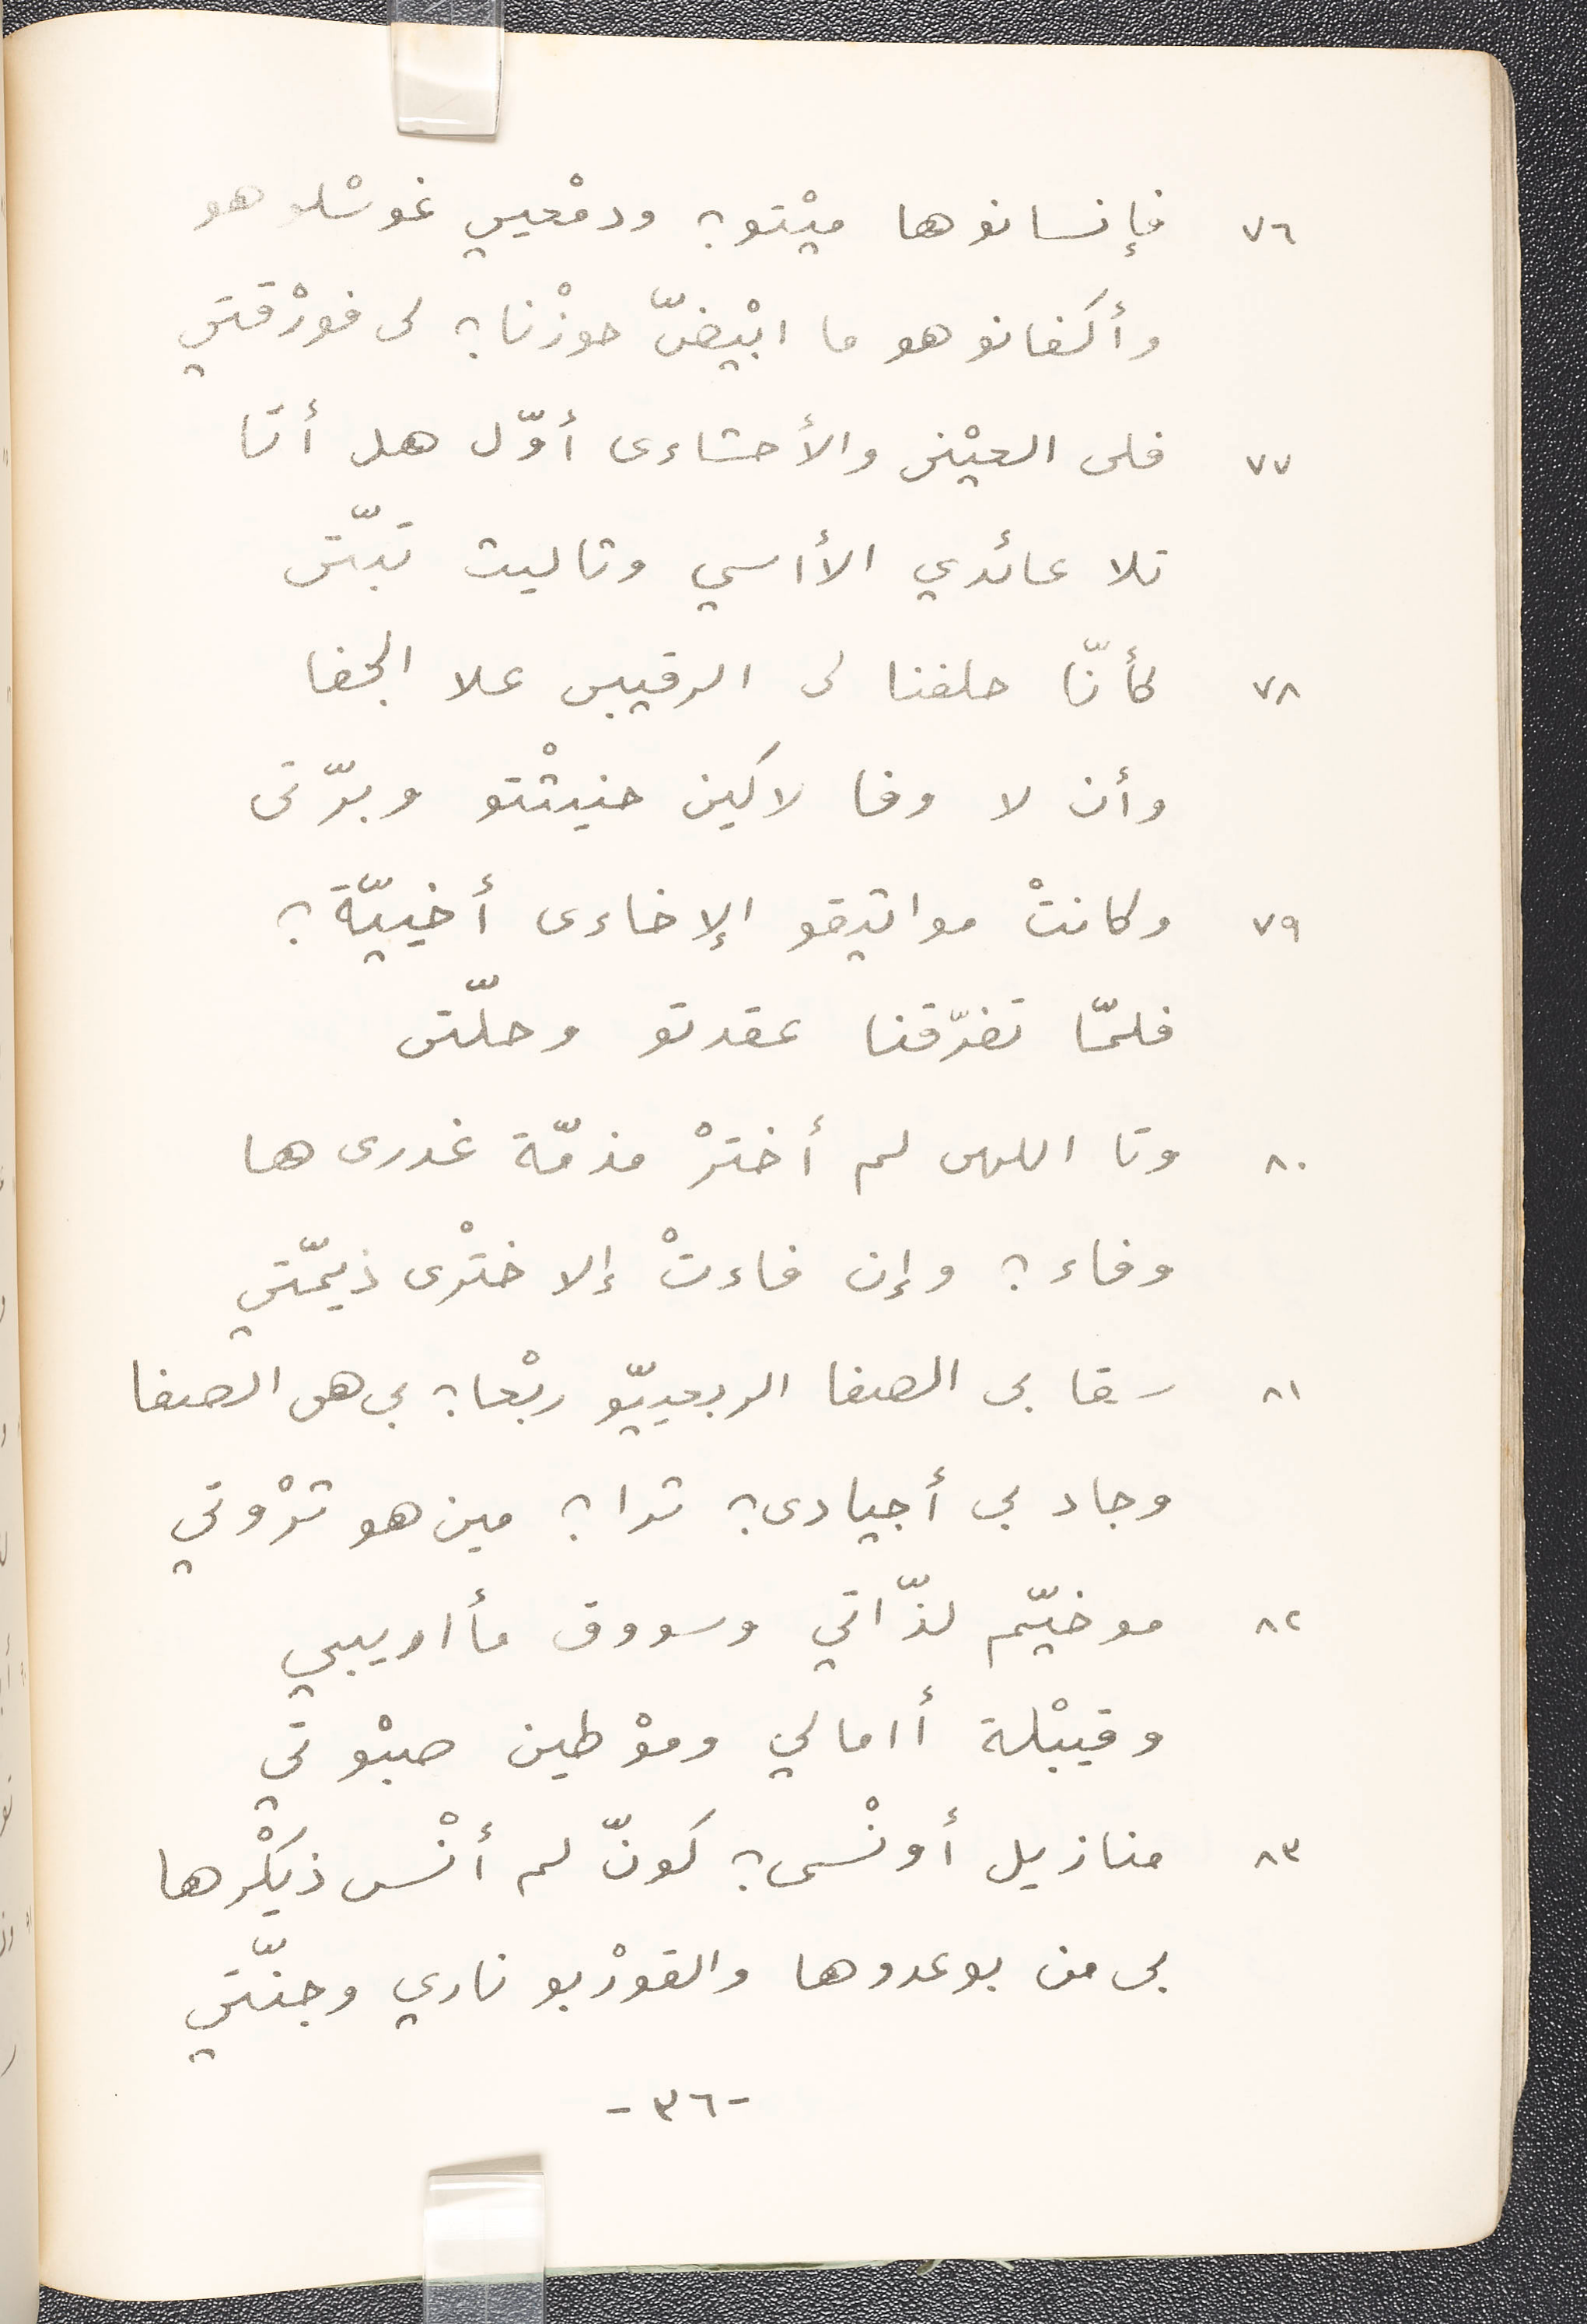 ٧٦ فإنسانوها ميْتو؟ ودمْعيي غوسْلوهو
وأكفانوهو ما ابْيضّ حوزْنا؟ لى فورْقتي
٧٧ فلى العيْنى والأحشاءى أوّل هل أتا
تلا عائدي الأاسي وتاليت تبّتى
٧٨ كأنّا حلفنا لى الرقيبى علا الجفا
وأن لا وفا لاكين حنيثْتو وبرّتى
٧٩ وكانتْ مواثيقو الإخاءى أخييّة؟
فلمّا تفرّقنا عقدتو وحلّتى
٨٠ وتا اللهى لم أخترْ مذمّة غدرى ها
وفاء؟ وإن فاءتْ إلا خترْى ذيمّتي
٨١ سقا بى الصفا الربعييّو ربْعا؟ بى هى الصفا
وجاد بى أجيادى؟ ثرا؟ مين هو ثرْوتي
٨٢ موخيّم لذّاتي وسووق مأاريبي
وقيبْلة أامالي وموْطين صبْوتي
٨٣ منازيل أونْسى؟ كونّ لم أنْس ذيكْرها
بى من بوعدوها والقورْبو ناري وجنّتي
-٣٦-